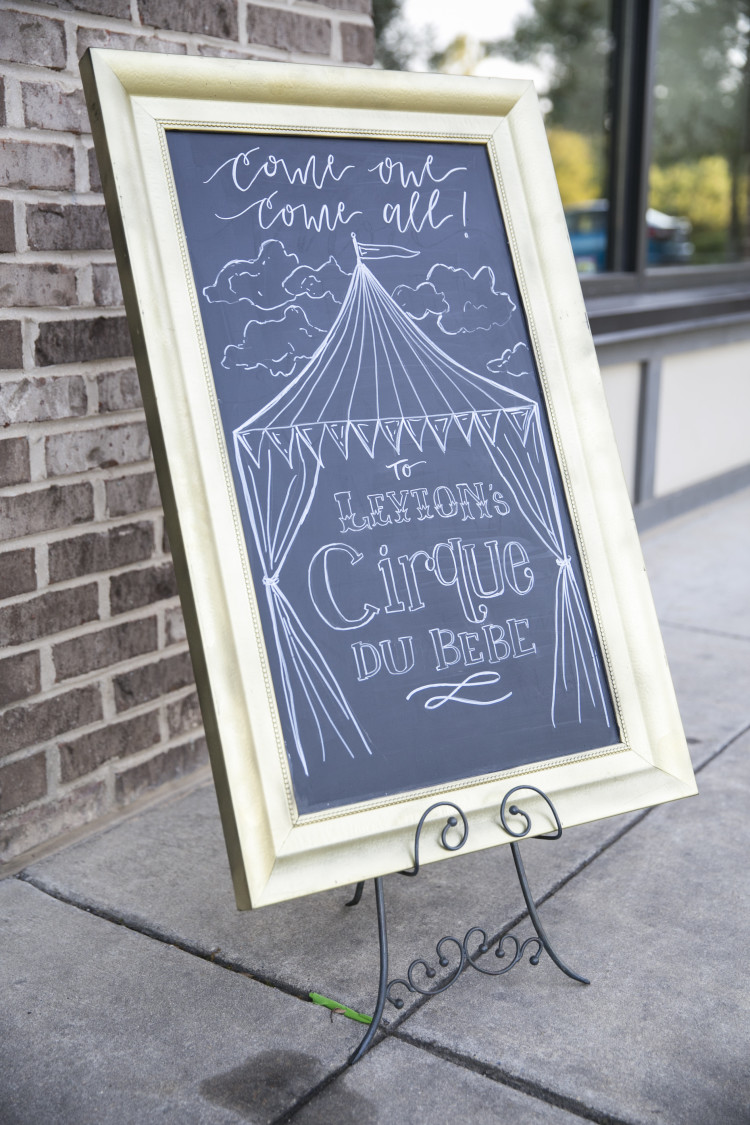 Come one
Come all!
TO
LEYTON's
Cirque
DU BEBE